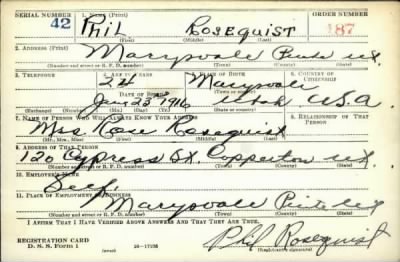 SERIAL NUMBER 1. NAME (Print) ORDER NUMBER
42 Phil Rosequist 187
(First) (Middle) (Last)
2. ADDRESS (Print)
Marysvale Piute Ut.
(Number and street or R. F. D. number) (Town) (County) (State)
3. TELEPHONE 4. AGE IN YEARS 5. PLACE OF BIRTH 6. COUNTRY OF CITIZENSHIP
24 Marysvale
DATE OF BIRTH
Jan 23 1916 Utah U.S.A.
(Exchange) (Number) (Mo.) (Day) (Yr.) (State or country)
7. NAME OF PERSON WHO WILL ALWAYS KNOW YOUR ADDRESS 8. RELATIONSHIP OF THAT PERSON
Mrs. Rose Rosequist
(Mr., Mrs., Miss) (First) (Middle) (Last)
9. ADDRESS OF THAT PERSON
120 Cypress St. Copperton Ut.
(Number and street or R. F. D. number) (Town) (County) (State)
10. EMPLOYER'S NAME
Self
11. PLACE OF EMPLOYMENT OR BUSINESS
Marysvale Piute Ut
(Number and street or R. F. D. number) (Town) (County) (State)
I AFFIRM THAT I HAVE VERIFIED ABOVE ANSWERS AND THAT THEY ARE TRUE.
REGISTRATION CARD
D. S. S. FORM 1 16-17105 Phil Rosequist
(Registrant's signature)